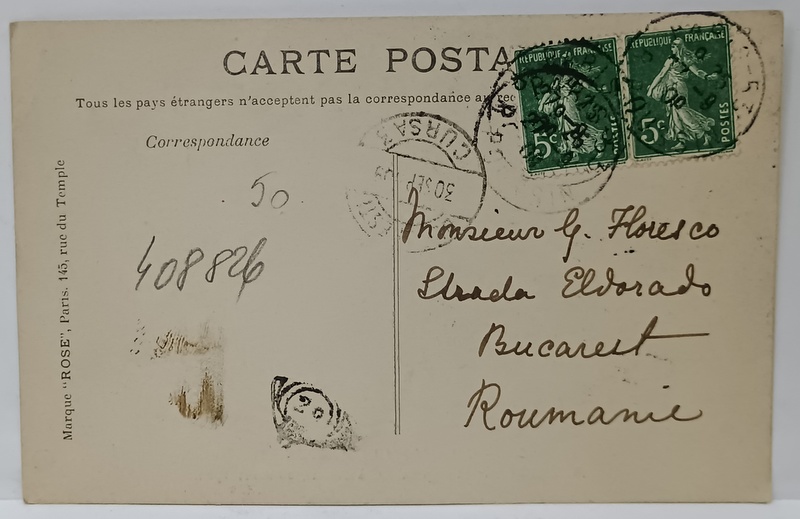 CARTE POSTA
Tous les pays étrangers n'acceptent pas la correspondance au rec
Correspondance
REPUBLIQUE FRANÇAISE
5c
POSTES
REPUBLIQUE FRANÇAISE
5c
POSTES
CURSA
30 SEP
50
408826
Monsieur G. Floresco
Strada Eldorado
Bucarest
Roumanie
Marque "ROSE", Paris. 145, rue du Temple